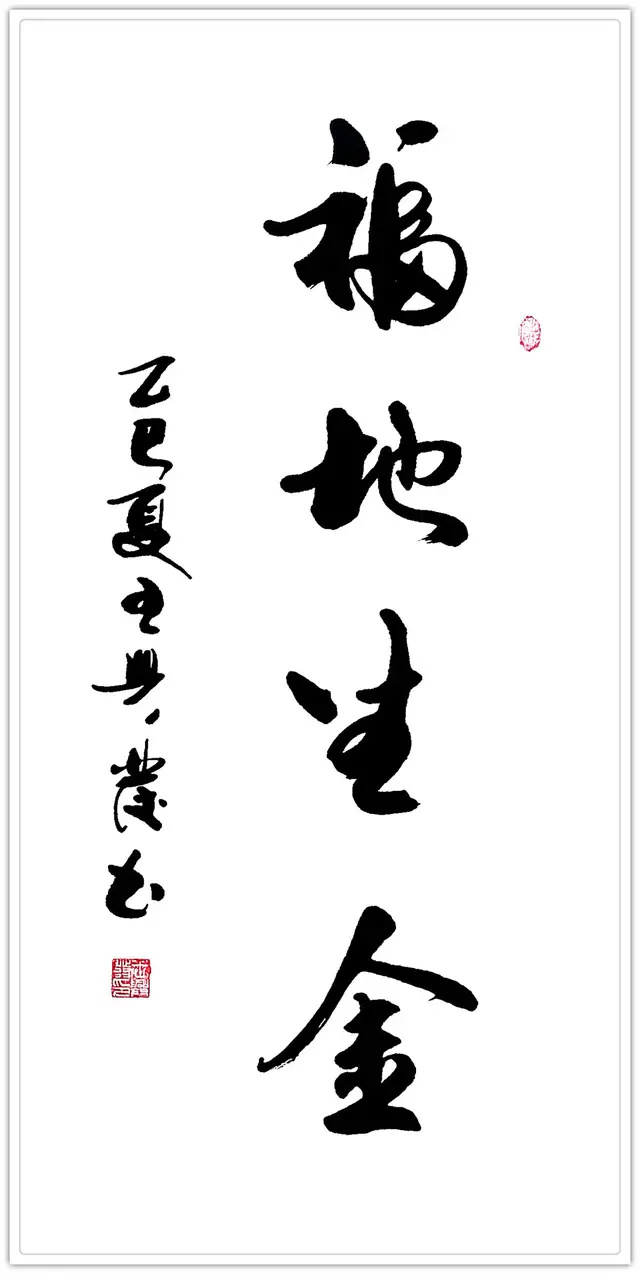 福地生金
乙巳夏王興發书